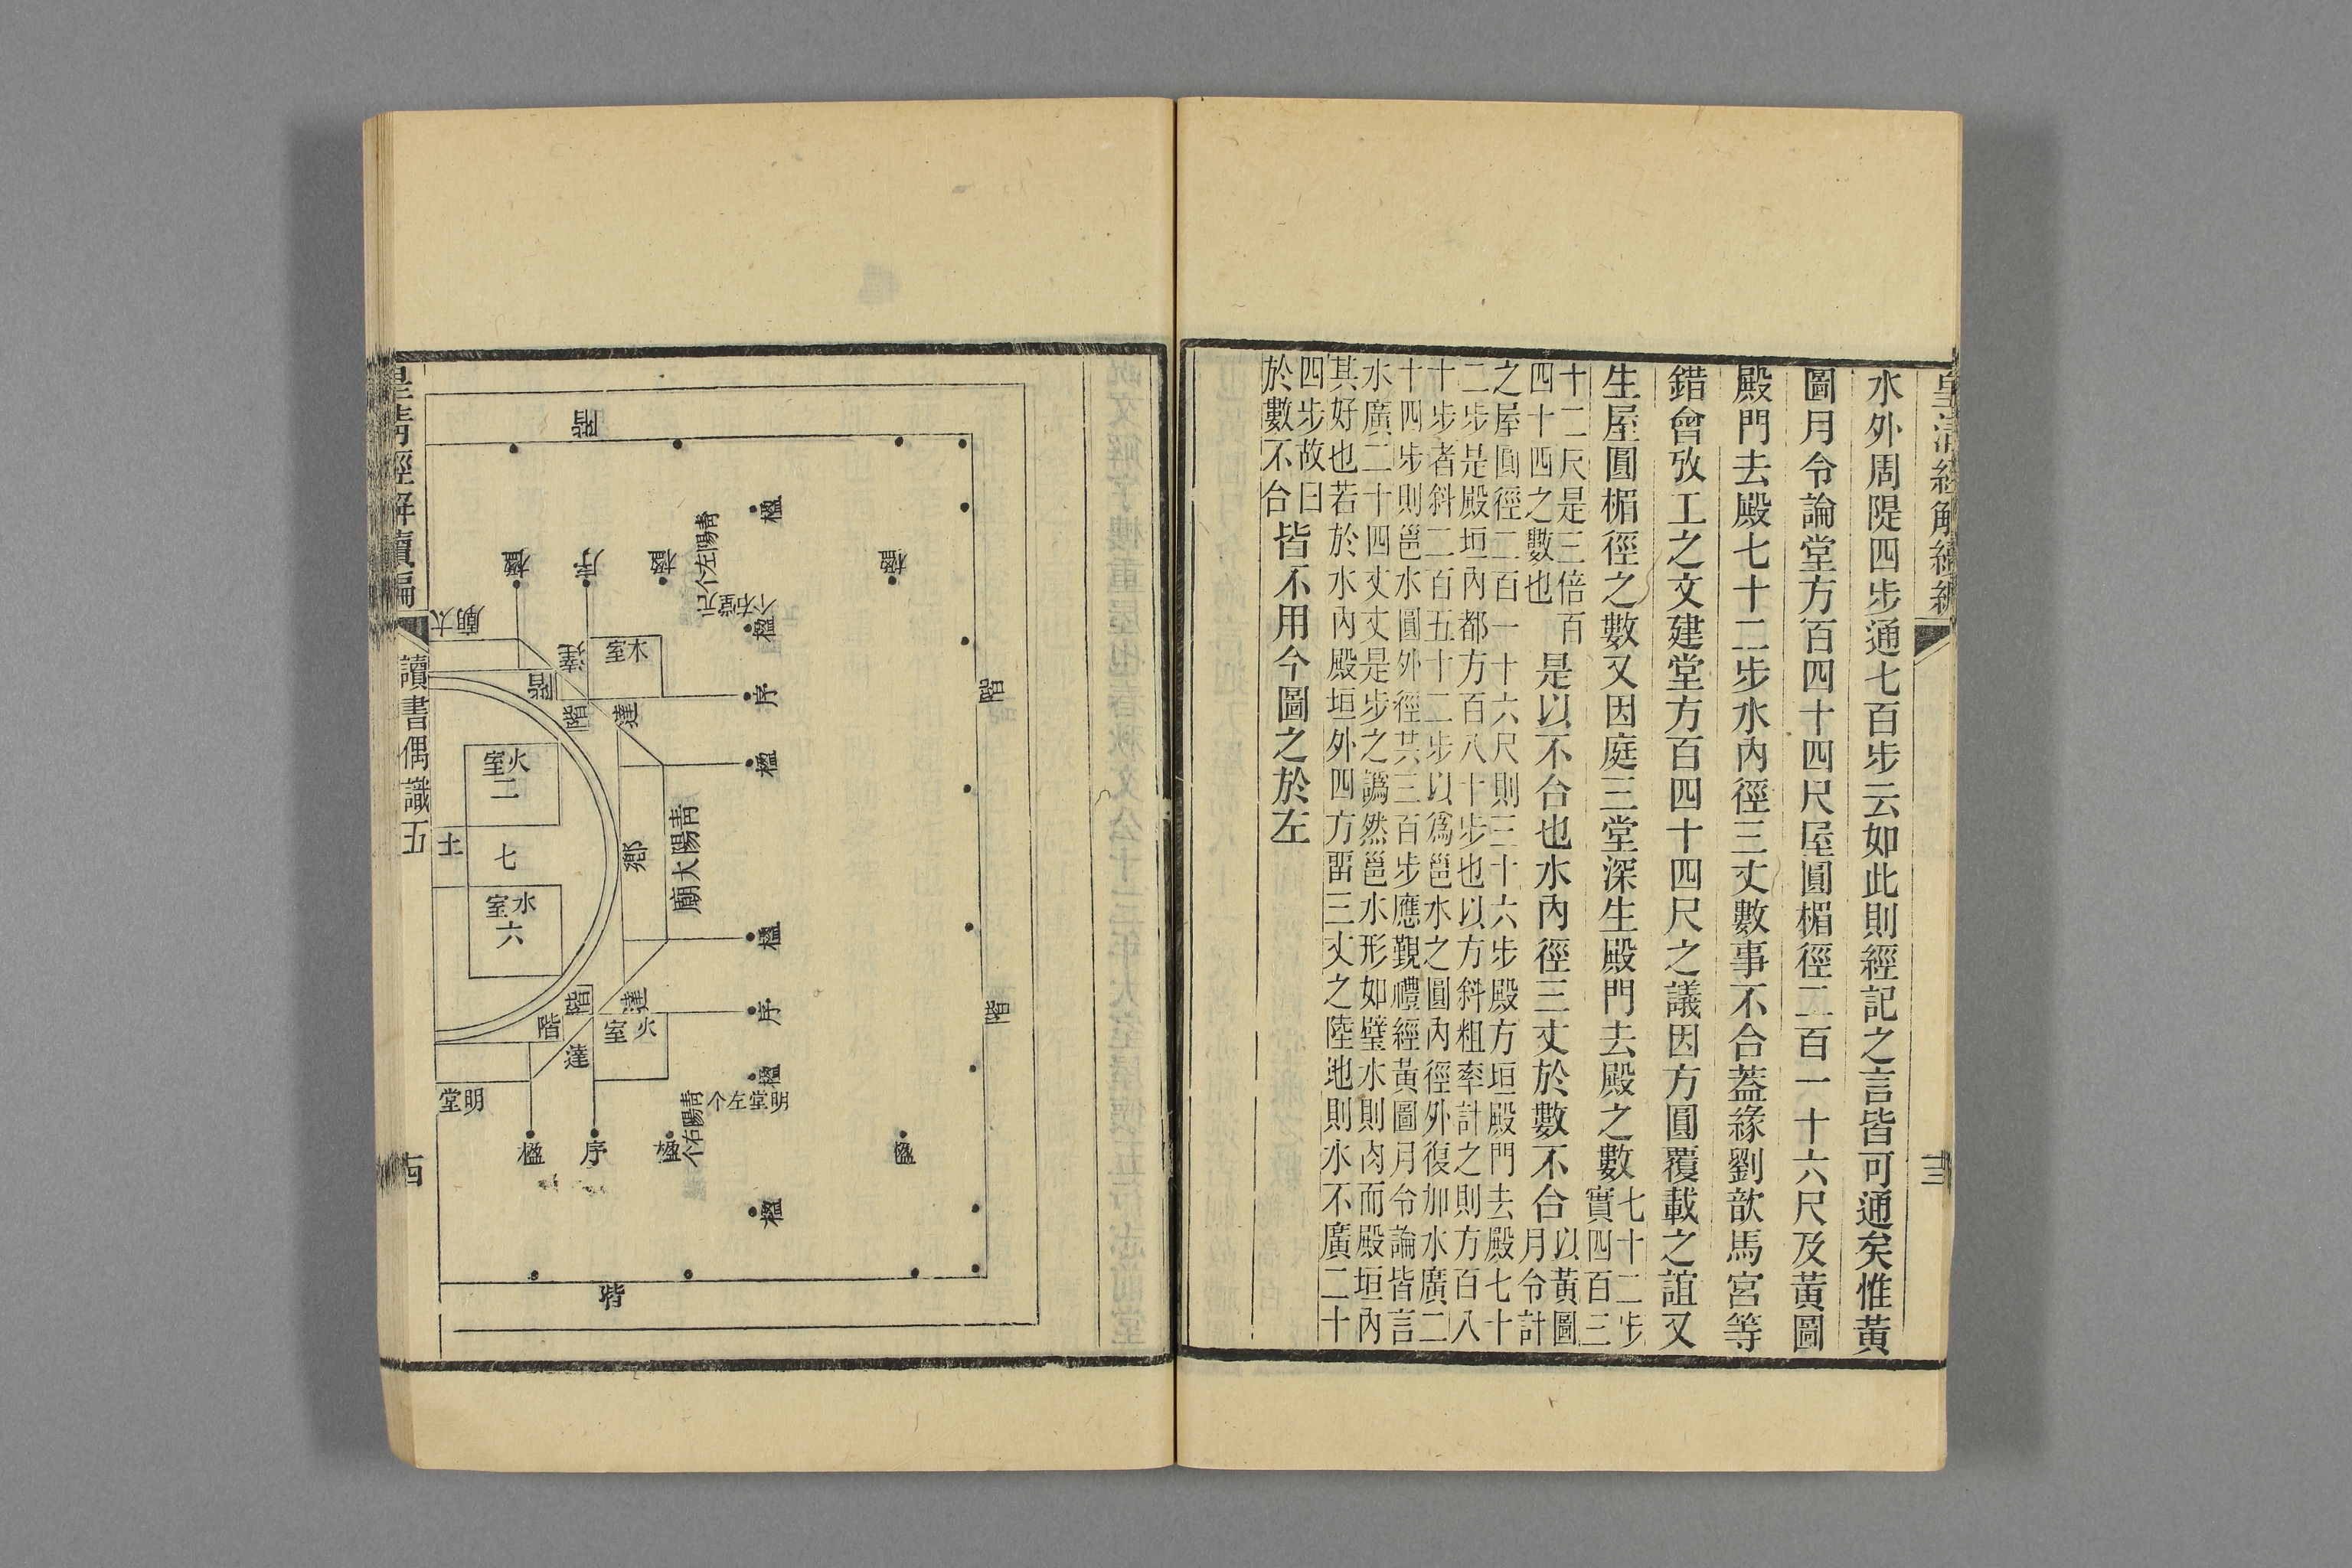 皇清經解續編
十三
水外周隄四步通七百步云如此則經記之言皆可通矣惟黃
圖月令論堂方百四十四尺屋圓楣徑二百一十六尺及黃圖
殿門去殿七十二步水內徑三丈數事不合蓋緣劉歆馬宮等
錯會攷工之文建堂方百四十四尺之議因方圓覆載之誼又
生屋圓楣徑之數又因庭三堂深生殿門去殿之數七十二步
實四百三
十二尺是三倍百
四十四之數也
是以不合也水內徑三丈於數不合以黃圖
月令計
之屋圓徑二百一十六尺則三十六步殿方垣殿門去殿七十
二步是殿垣內都方百八十步也以方斜粗率計之則方百八
十步者斜二百五十二步以爲邕水之圓內徑外復加水廣二
十四步則邕水圓外徑共三百步應覲禮經黃圖月令論皆言
水廣二十四丈丈是步之譌然邕水形如璧水則肉而殿垣內
其好也若於水內殿垣外四方畱三丈之陸地則水不廣二十
四步故曰
於數不合
皆不用今圖之於左
階
階
階
階
楹
楹
序
楹
楹
序
楹
楹
楹
楹
序
楹
青陽左个
元堂右个
太廟
木室
達
階
階
達
火室
二
七
土
水室
六
鄉
青陽太廟
階
階
達
達
火室
明堂
青陽右个
明堂左个
楹
序
楹
楹
皇清經解續編
讀書偶識五
十四